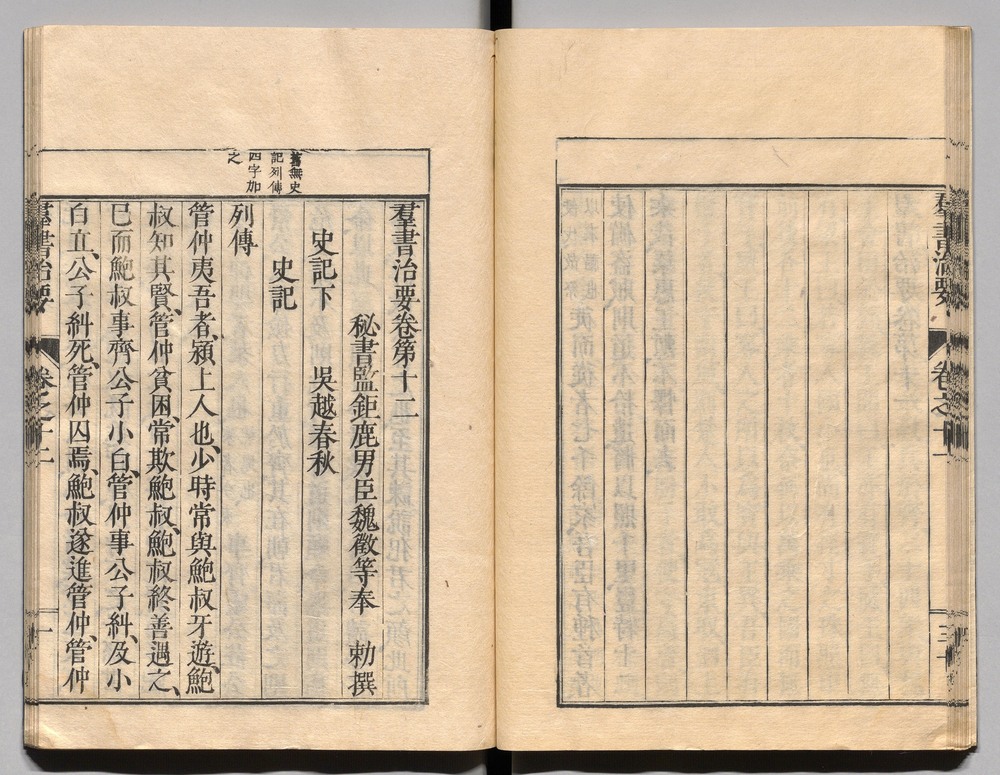 羣書治要
卷之十一
三十
舊無史
記列傳
四字加
之
羣書治要卷第十二
秘書監鉅鹿男臣魏徵等奉　勅撰
史記下　吳越春秋
史記
列傳
管仲夷吾者、潁上人也、少時常與鮑叔牙遊、鮑
叔知其賢、管仲貧困、常欺鮑叔、鮑叔終善遇之、
巳而鮑叔事齊公子小白、管仲事公子糾、及小
白立、公子糾死、管仲囚焉、鮑叔遂進管仲、管仲
羣書治要
卷之十二
一